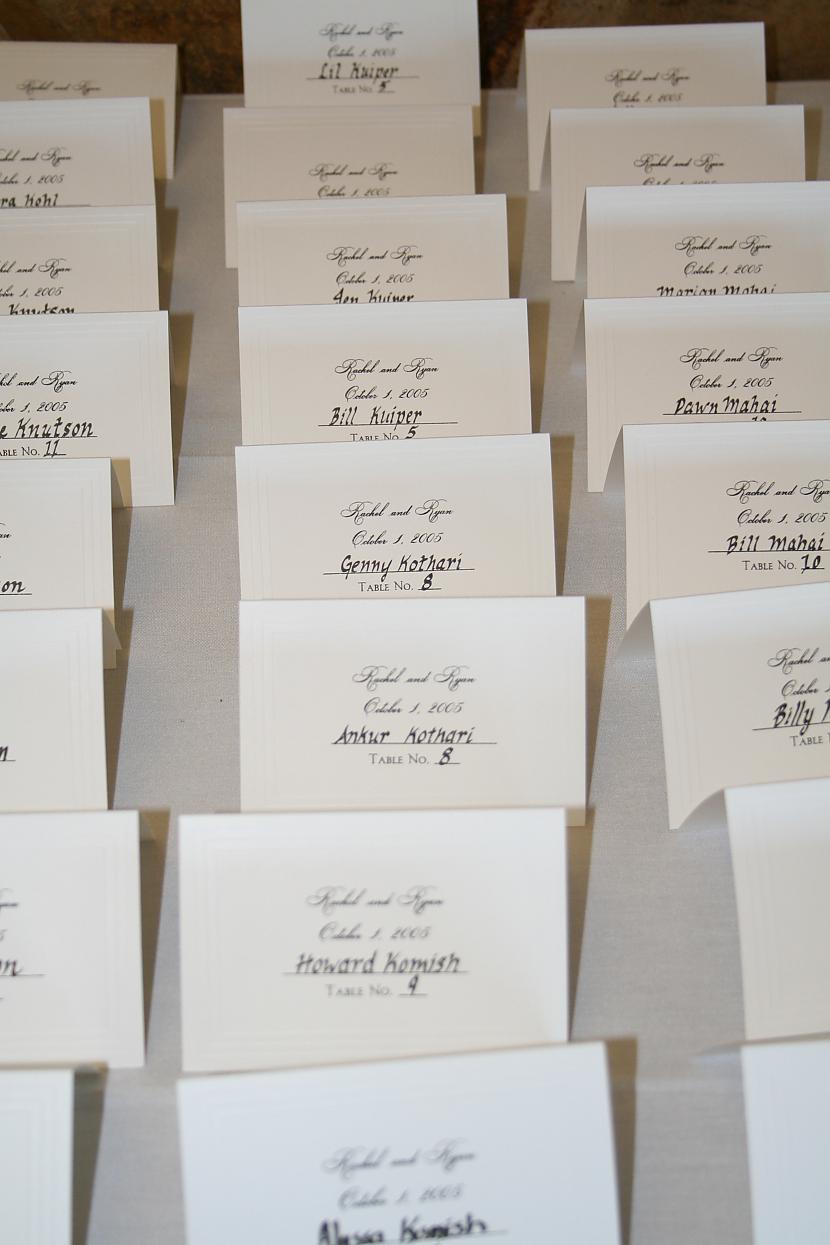 Rachel and Ryan
Rachel and Ryan
October 1, 2005
Kohl
Rachel and Ryan
October 1, 2005
Knutson
Rachel and Ryan
October 1, 2005
Knutson
Table No. 11
Rachel and Ryan
October 1, 2005
Lil Kuiper
Table No. 5
Rachel and Ryan
October 1, 2005
Rachel and Ryan
October 1, 2005
Jen Kuiper
Rachel and Ryan
October 1, 2005
Bill Kuiper
Table No. 5
Rachel and Ryan
October 1, 2005
Genny Kothari
Table No. 8
Rachel and Ryan
October 1, 2005
Ankur Kothari
Table No. 8
Rachel and Ryan
October 1, 2005
Howard Komish
Table No. 9
Rachel and Ryan
October 1, 2005
Alyssa Komish
Rachel and Ryan
October 1, 2005
Rachel and Ryan
October 1, 2005
Rachel and Ryan
October 1, 2005
Marian Mahai
Rachel and Ryan
October 1, 2005
Dawn Mahai
Rachel and Ryan
October 1, 2005
Bill Mahai
Table No. 10
Rachel and
October 1,
Billy
Table